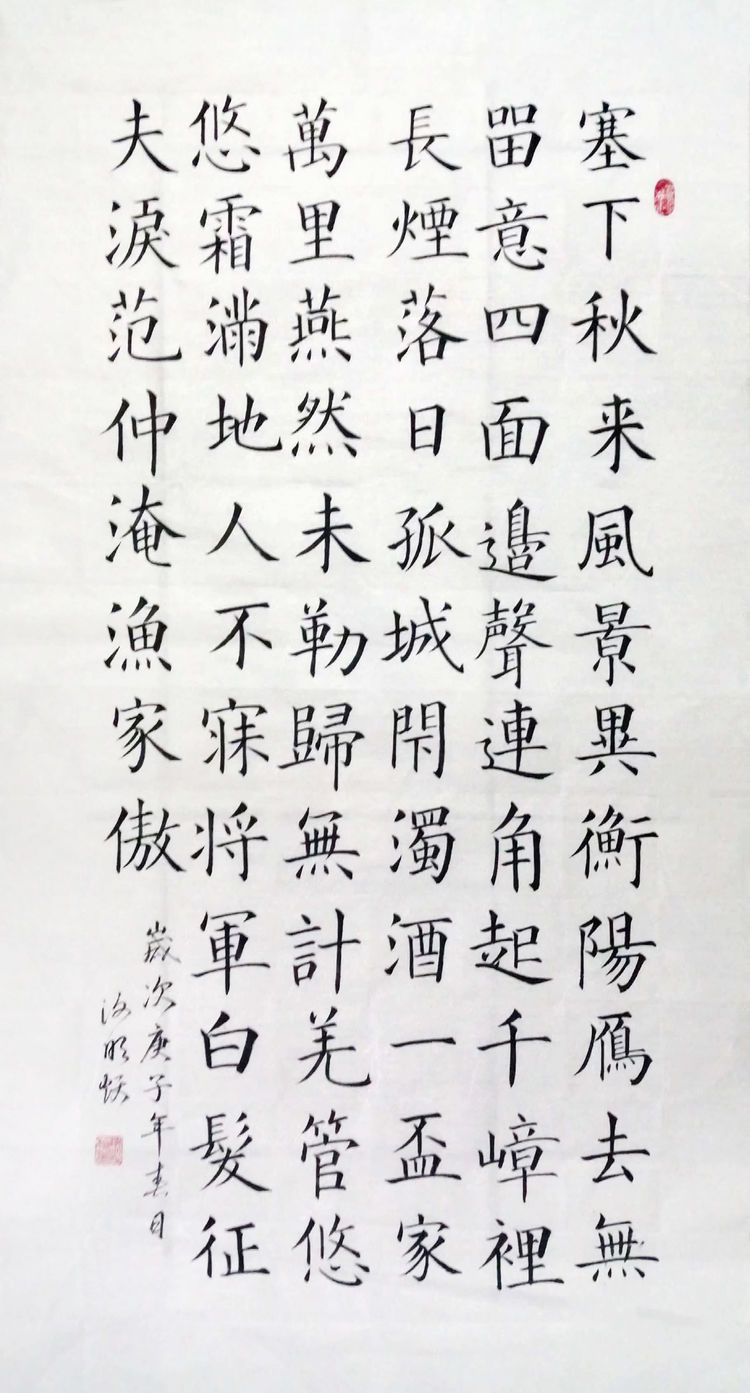 塞下秋来風景異衡陽鴈去無
畱意四面邉聲連角起千嶂裡
長煙落日孤城閇濁酒一盃家
萬里燕然未勒歸無計羌管悠
悠霜滿地人不寐将軍白髮征
夫淚范仲淹漁家傲
嵗次庚子年春日